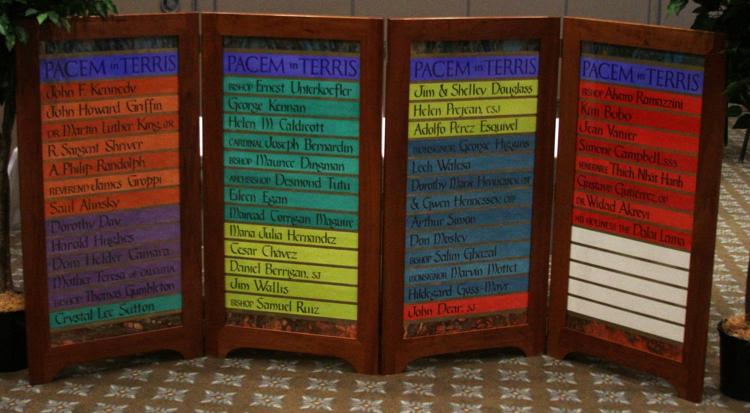 PACEM in TERRIS
John F. Kennedy
John Howard Griffin
DR Martin Luther King, JR.
R. Sargent Shriver
A. Philip Randolph
REVEREND James Groppi
Saul Alinsky
Dorothy Day
Harold Hughes
Dom Helder Camara
Mother Teresa OF CALCUTTA
BISHOP Thomas Gumbleton
Crystal Lee Sutton
PACEM in TERRIS
BISHOP Ernest Unterkoefler
George Kennan
Helen M Caldicott
CARDINAL Joseph Bernardin
BISHOP Maurice Dingman
ARCHBISHOP Desmond Tutu
Eileen Egan
Mairead Corrigan Maguire
Maria Julia Hernandez
Cesar Chavez
Daniel Berrigan, SJ
Jim Wallis
BISHOP Samuel Ruiz
PACEM in TERRIS
Jim & Shelley Douglass
Helen Prejean, CSJ
Adolfo Perez Esquivel
MONSIGNOR George Higgins
Lech Walesa
Dorothy Marie Hennessey, OSF
& Gwen Hennessey, OSF
Arthur Simon
Don Mosley
BISHOP Salim Ghazal
MONSIGNOR Marvin Mottet
Hildegard Goss-Mayr
John Dear, SJ
PACEM in TERRIS
BISHOP Alvaro Ramazzini
Kim Bobo
Jean Vanier
Simone Campbell, SSS
VENERABLE Thich Nhat Hanh
Gustavo Gutierrez, OP
DR. Widad Akreyi
HIS HOLINESS THE Dalai Lama